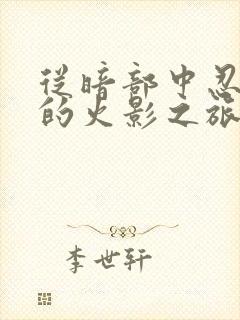 从暗部中忍
的火影之旅
李世轩